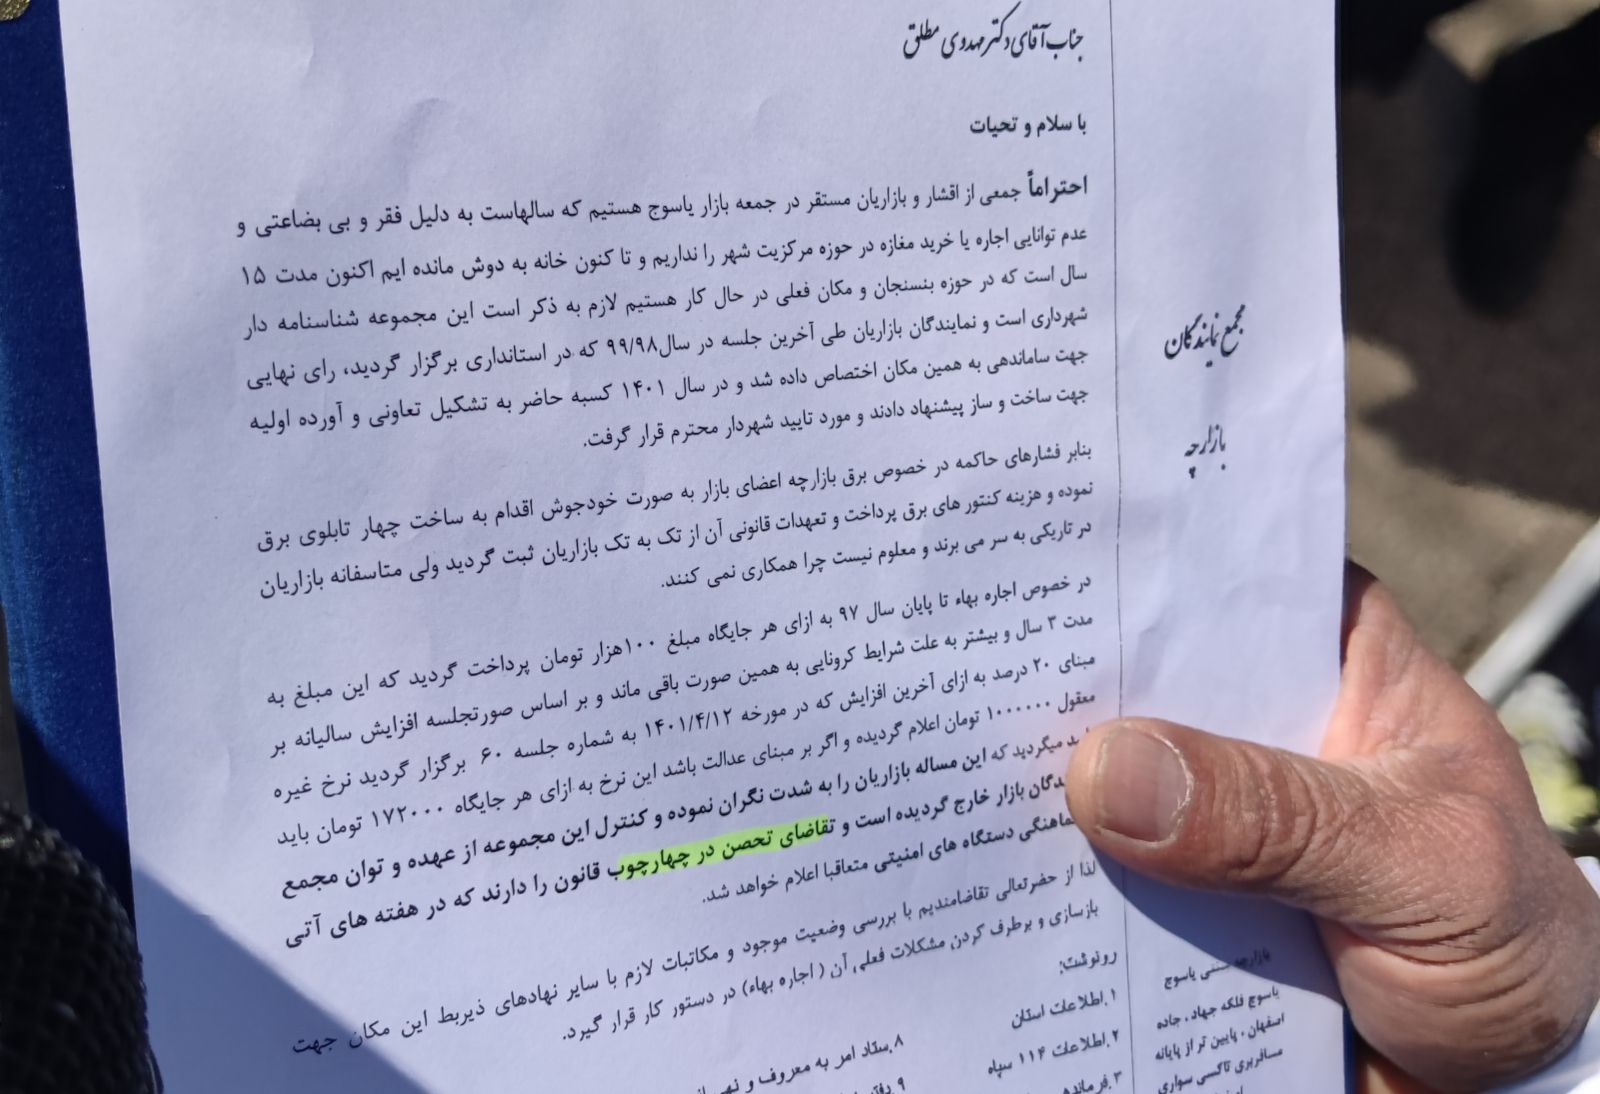 جناب آقای دکتر مهدوی مطلق
با سلام و تحیات
احتراماً جمعی از اقشار و بازاریان مستقر در جمعه بازار یاسوج هستیم که سالهاست به دلیل فقر و بی بضاعتی و
عدم توانایی اجاره یا خرید مغازه در حوزه مرکزیت شهر را نداریم و تا کنون خانه به دوش مانده ایم اکنون مدت ۱۵
سال است که در حوزه بنسنجان و مکان فعلی در حال کار هستیم لازم به ذکر است این مجموعه شناسنامه دار
شهرداری است و نمایندگان بازاریان طی آخرین جلسه در سال۹۹/۹۸ که در استانداری برگزار گردید، رای نهایی
جهت ساماندهی به همین مکان اختصاص داده شد و در سال ۱۴۰۱ کسبه حاضر به تشکیل تعاونی و آورده اولیه
جهت ساخت و ساز پیشنهاد دادند و مورد تایید شهردار محترم قرار گرفت.
بنابر فشارهای حاکمه در خصوص برق بازارچه اعضای بازار به صورت خودجوش اقدام به ساخت چهار تابلوی برق
نموده و هزینه کنتور های برق پرداخت و تعهدات قانونی آن از تک به تک بازاریان ثبت گردید ولی متاسفانه بازاریان
در تاریکی به سر می برند و معلوم نیست چرا همکاری نمی کنند.
در خصوص اجاره بهاء تا پایان سال ۹۷ به ازای هر جایگاه مبلغ ۱۰۰هزار تومان پرداخت گردید که این مبلغ به
مدت ۳ سال و بیشتر به علت شرایط کرونایی به همین صورت باقی ماند و بر اساس صورتجلسه افزایش سالیانه بر
مبنای ۲۰ درصد به ازای آخرین افزایش که در مورخه ۱۴۰۱/۴/۱۲ به شماره جلسه ۶۰ برگزار گردید نرخ غیره
معقول ۱۰۰۰۰۰۰ تومان اعلام گردیده و اگر بر مبنای عدالت باشد این نرخ به ازای هر جایگاه ۱۷۲۰۰۰ تومان باید
میگردید که این مساله بازاریان را به شدت نگران نموده و کنترل این مجموعه از عهده و توان مجمع
بازار خارج گردیده است و تقاضای تحصن در چهارچوب قانون را دارند که در هفته های آتی
دستگاه های امنیتی متعاقبا اعلام خواهد شد.
لذا از حضرتعالی تقاضامندیم با بررسی وضعیت موجود و مکاتبات لازم با سایر نهادهای ذیربط این مکان جهت
بازسازی و برطرف کردن مشکلات فعلی آن ( اجاره بهاء) در دستور کار قرار گیرد.
رونوشت:
۱.اطلاعات استان
۲.اطلاعات ۱۱۴ سپاه
۸.ستاد امر به معروف و
مجمع نمایندگان
بازارچه
بازارچه سنتی یاسوج
یاسوج فلکه جهاد ، جاده
اصفهان ، پایین تر از پایانه
مسافربری تاکسی سواری